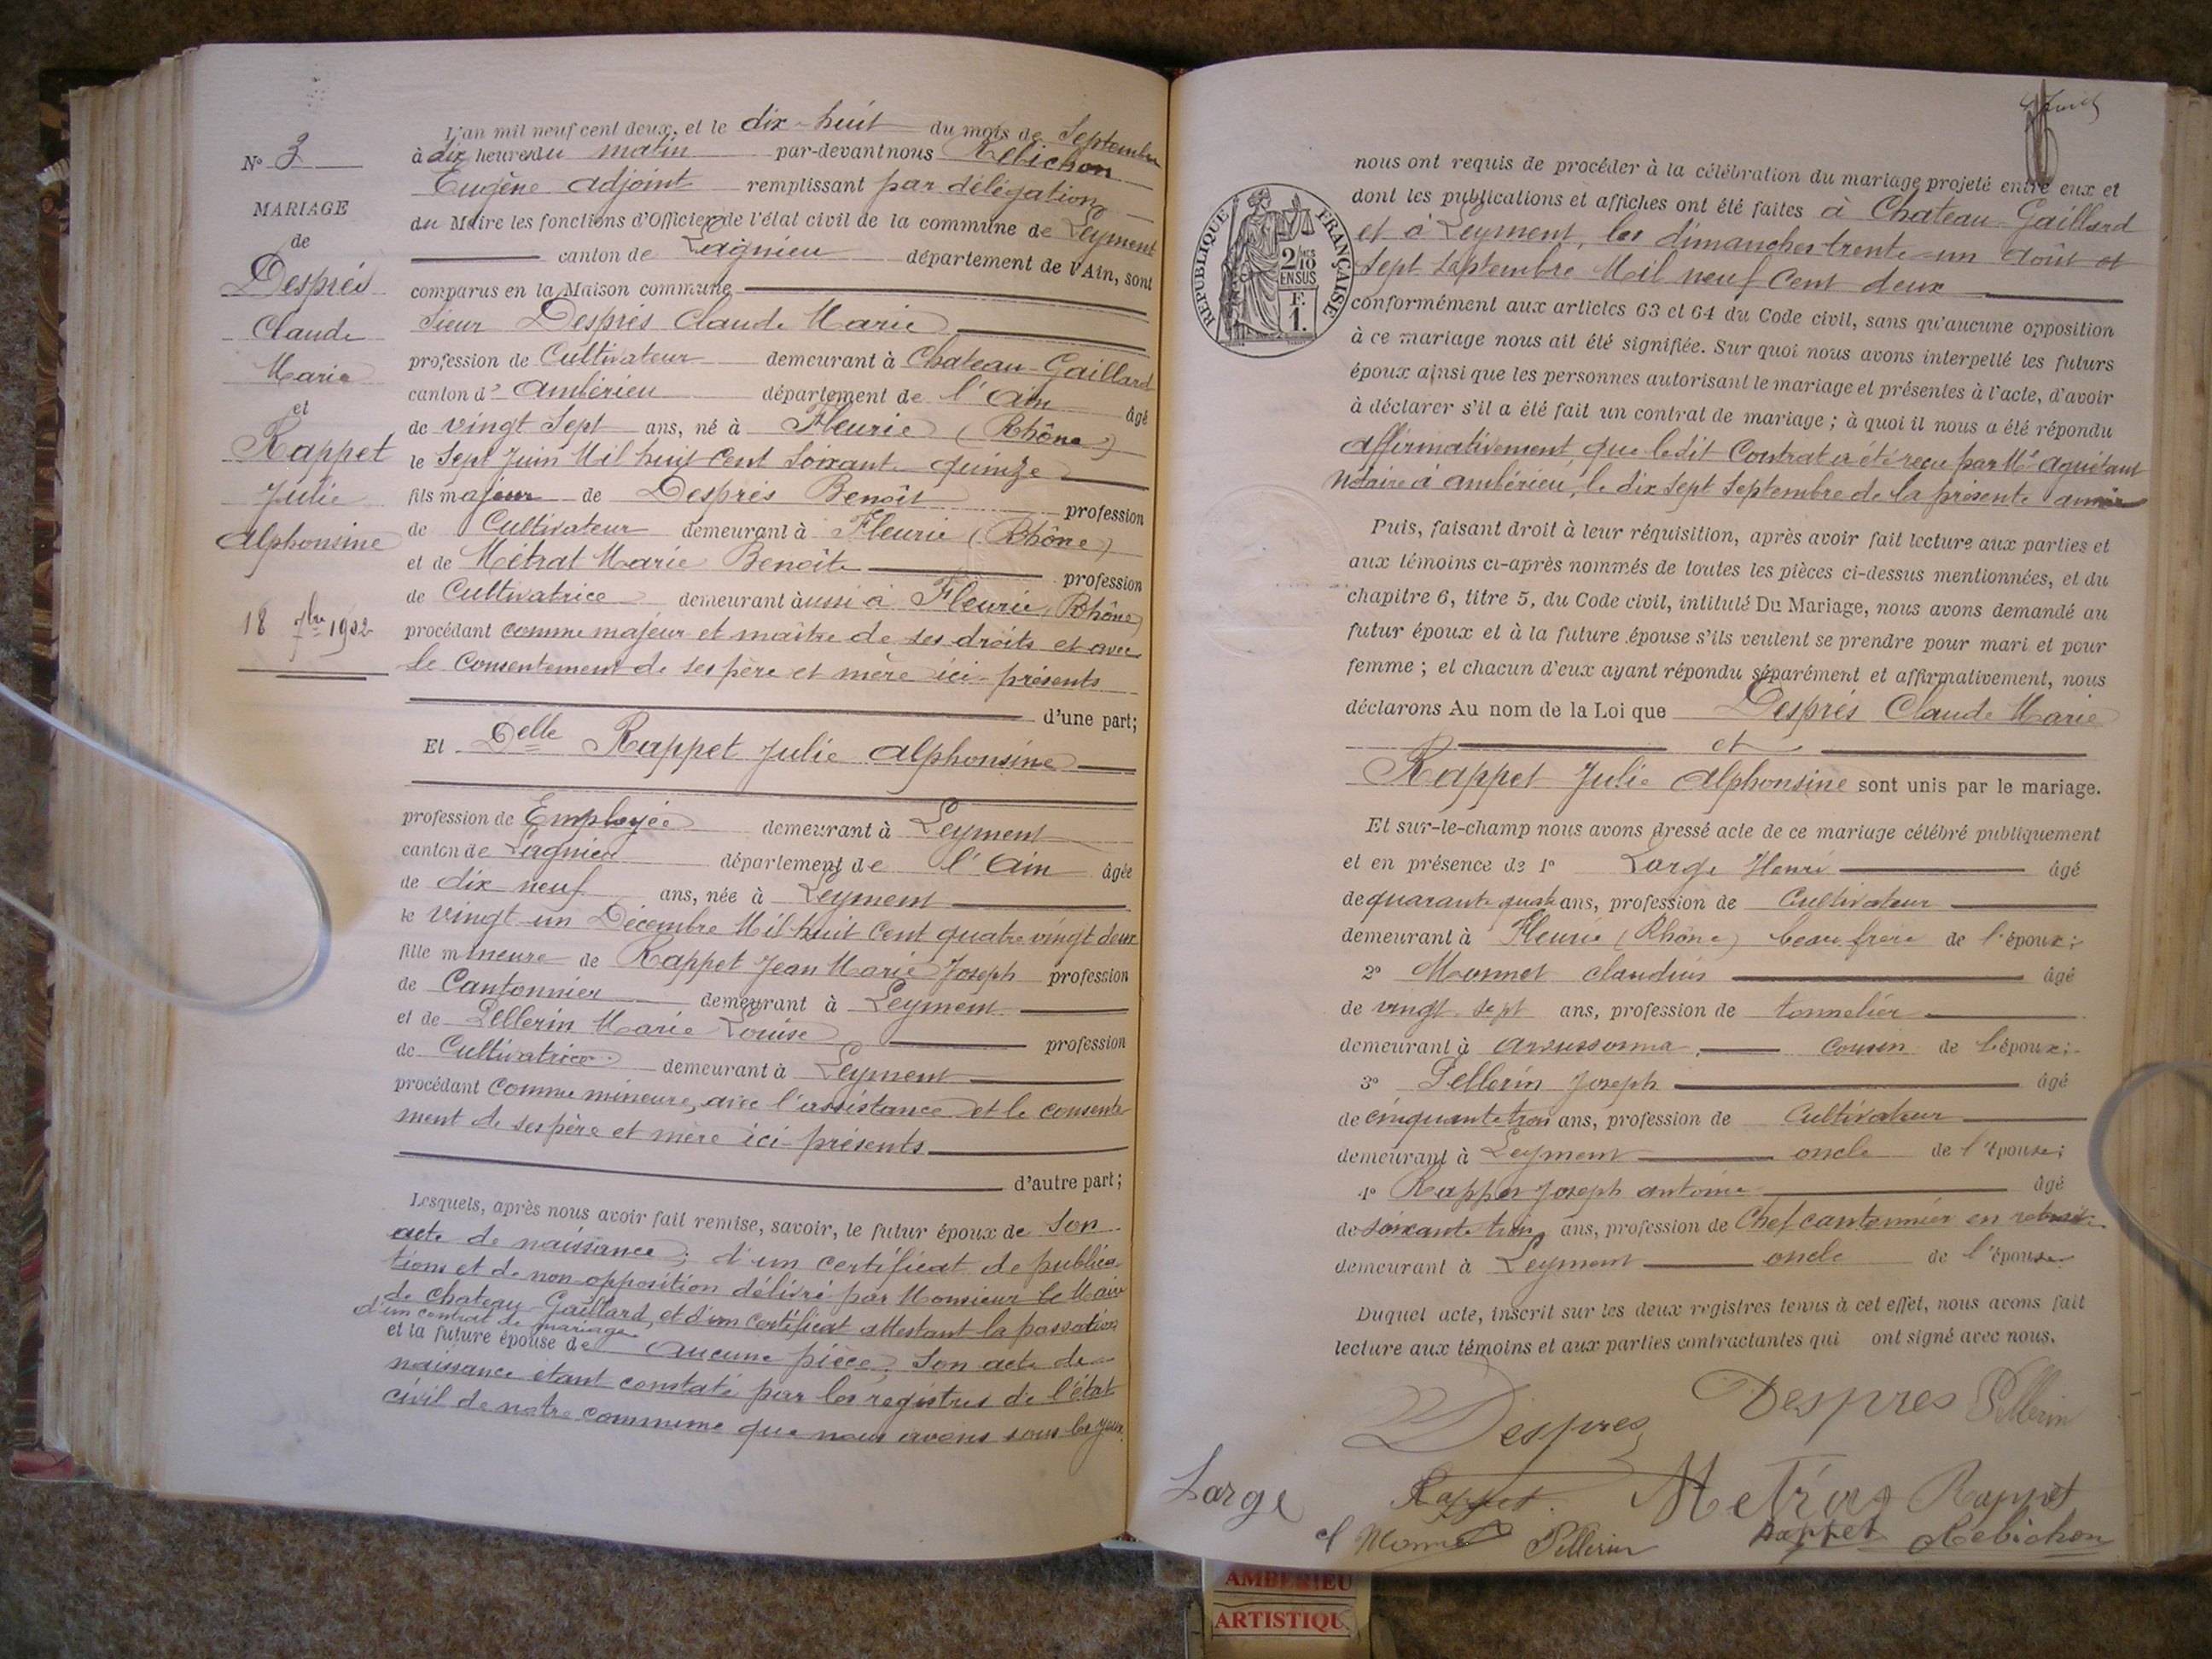 N° 3
MARIAGE
de
Desprès
Claude
Marie
et
Rappet
Julie
Alphonsine
18 7bre 1902
L'an mil neuf cent deux, et le dix-huit du mois de Septembre
à dix heures du matin par-devant nous Rebichon
Eugène adjoint remplissant par délégation
du Maire les fonctions d'Officier de l'état civil de la commune de Leyment
canton de Lagnieu département de l'Ain, sont
comparus en la Maison commune
Sieur Desprès Claude Marie
profession de Cultivateur demeurant à Chateau-Gaillard
canton d' Ambérieu département de l'Ain âgé
de vingt Sept ans, né à Fleurie (Rhône)
le Sept Juin Mil huit Cent Soixante quinze
fils majeur de Desprès Benoît profession
de Cultivateur demeurant à Fleurie (Rhône)
et de Métrat Marie Benoîte profession
de Cultivatrice demeurant aussi à Fleurie (Rhône)
procédant comme majeur et maître de ses droits et avec
le Consentement de ses père et mère ici-présents
d'une part;
Et Delle Rappet Julie Alphonsine
profession de Employée demeurant à Leyment
canton de Lagnieu département de l'Ain âgée
de dix neuf ans, née à Leyment
le vingt-un Décembre Mil huit Cent quatre vingt deux
fille mineure de Rappet Jean Marie Joseph profession
de Cantonnier demeurant à Leyment
et de Pellerin Marie Louise profession
de Cultivatrice demeurant à Leyment
procédant comme mineure, avec l'assistance et le consente-
ment de ses père et mère ici-présents
d'autre part;
Lesquels, après nous avoir fait remise, savoir, le futur époux de Son
acte de naissance; d'un certificat de publica-
tions et de non-opposition délivré par Monsieur le Maire
de Chateau-Gaillard, et d'un certificat attestant la passation
d'un contrat de mariage
et la future épouse de aucune pièce, Son acte de
naissance étant constaté par les registres de l'état
civil de notre commune que nous avons sous les yeux.
REPUBLIQUE FRANÇAISE
2/10
EN SUS
F.
1.
nous ont requis de procéder à la célébration du mariage projeté entre eux et
dont les publications et affiches ont été faites à Chateau-Gaillard
et à Leyment, les dimanches trente-un Août et
Sept Septembre Mil neuf Cent deux
conformément aux articles 63 et 64 du Code civil, sans qu'aucune opposition
à ce mariage nous ait été signifiée. Sur quoi nous avons interpellé les futurs
époux ainsi que les personnes autorisant le mariage et présentes à l'acte, d'avoir
à déclarer s'il a été fait un contrat de mariage; à quoi il nous a été répondu
affirmativement que ledit Contrat a été reçu par Me Aguétant
Notaire à Ambérieu, le dix Sept Septembre de la présente année
Puis, faisant droit à leur réquisition, après avoir fait lecture aux parties et
aux témoins ci-après nommés de toutes les pièces ci-dessus mentionnées, et du
chapitre 6, titre 5, du Code civil, intitulé Du Mariage, nous avons demandé au
futur époux et à la future épouse s'ils veulent se prendre pour mari et pour
femme; et chacun d'eux ayant répondu séparément et affirmativement, nous
déclarons Au nom de la Loi que Desprès Claude Marie
et
Rappet Julie Alphonsine sont unis par le mariage.
Et sur-le-champ nous avons dressé acte de ce mariage célébré publiquement
et en présence de 1° Large Henri âgé
de quarante quatre ans, profession de Cultivateur
demeurant à Fleurie (Rhône) beau frère de l'époux;
2° Monnet Claudius âgé
de vingt sept ans, profession de tonnelier
demeurant à cousin de l'époux;
3° Pellerin Joseph âgé
de cinquante trois ans, profession de Cultivateur
demeurant à Leyment oncle de l'épouse;
4° Rappet Joseph Antoine âgé
de soixante trois ans, profession de Chef cantonnier en retraite
demeurant à Leyment oncle de l'épouse
Duquel acte, inscrit sur les deux registres tenus à cet effet, nous avons fait
lecture aux témoins et aux parties contractantes qui ont signé avec nous.
Despres Despres Pellerin
Large Rappet Metrat Rappet
Cl Monnet Pellerin Rappet Rebichon
AMBERIEU
ARTISTIQU